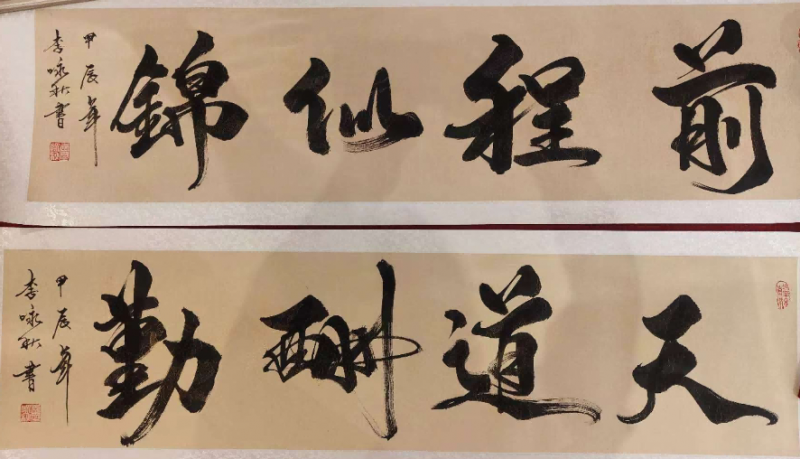 前程似錦
甲辰年
李咏秋書
天道酬勤
甲辰年
李咏秋書